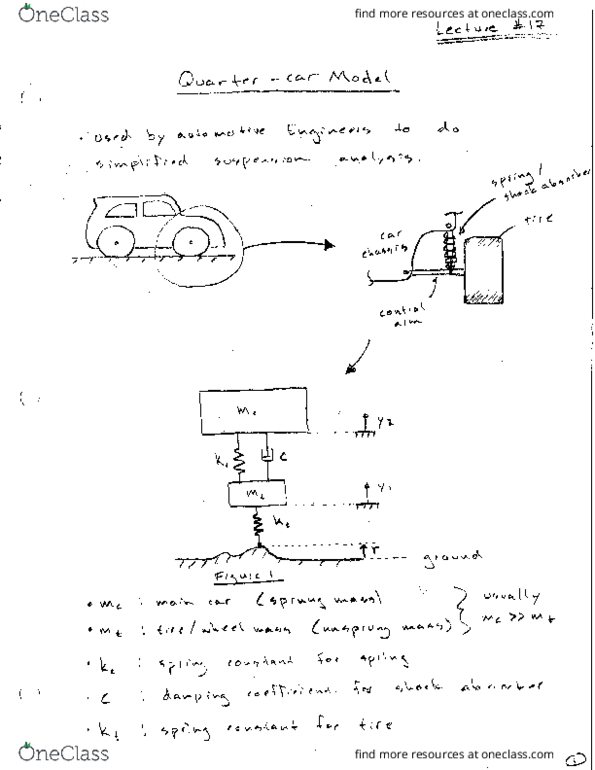 OneClass
find more resources at oneclass.com
Lecture #17
Quarter-car Model
• Used by automotive Engineers to do
simplified suspension analysis.
spring/
shock absorber
car
chassis
tire
control
arm
mc
y2
kc
c
mt
y1
kt
r
ground
Figure 1
• mc : main car (sprung mass)
• mt : tire/wheel mass (unsprung mass)
usually
mc >> mt
• kc : spring constant for spring
• c : damping coefficient for shock absorber
• kt : spring constant for tire
OneClass
find more resources at oneclass.com
1